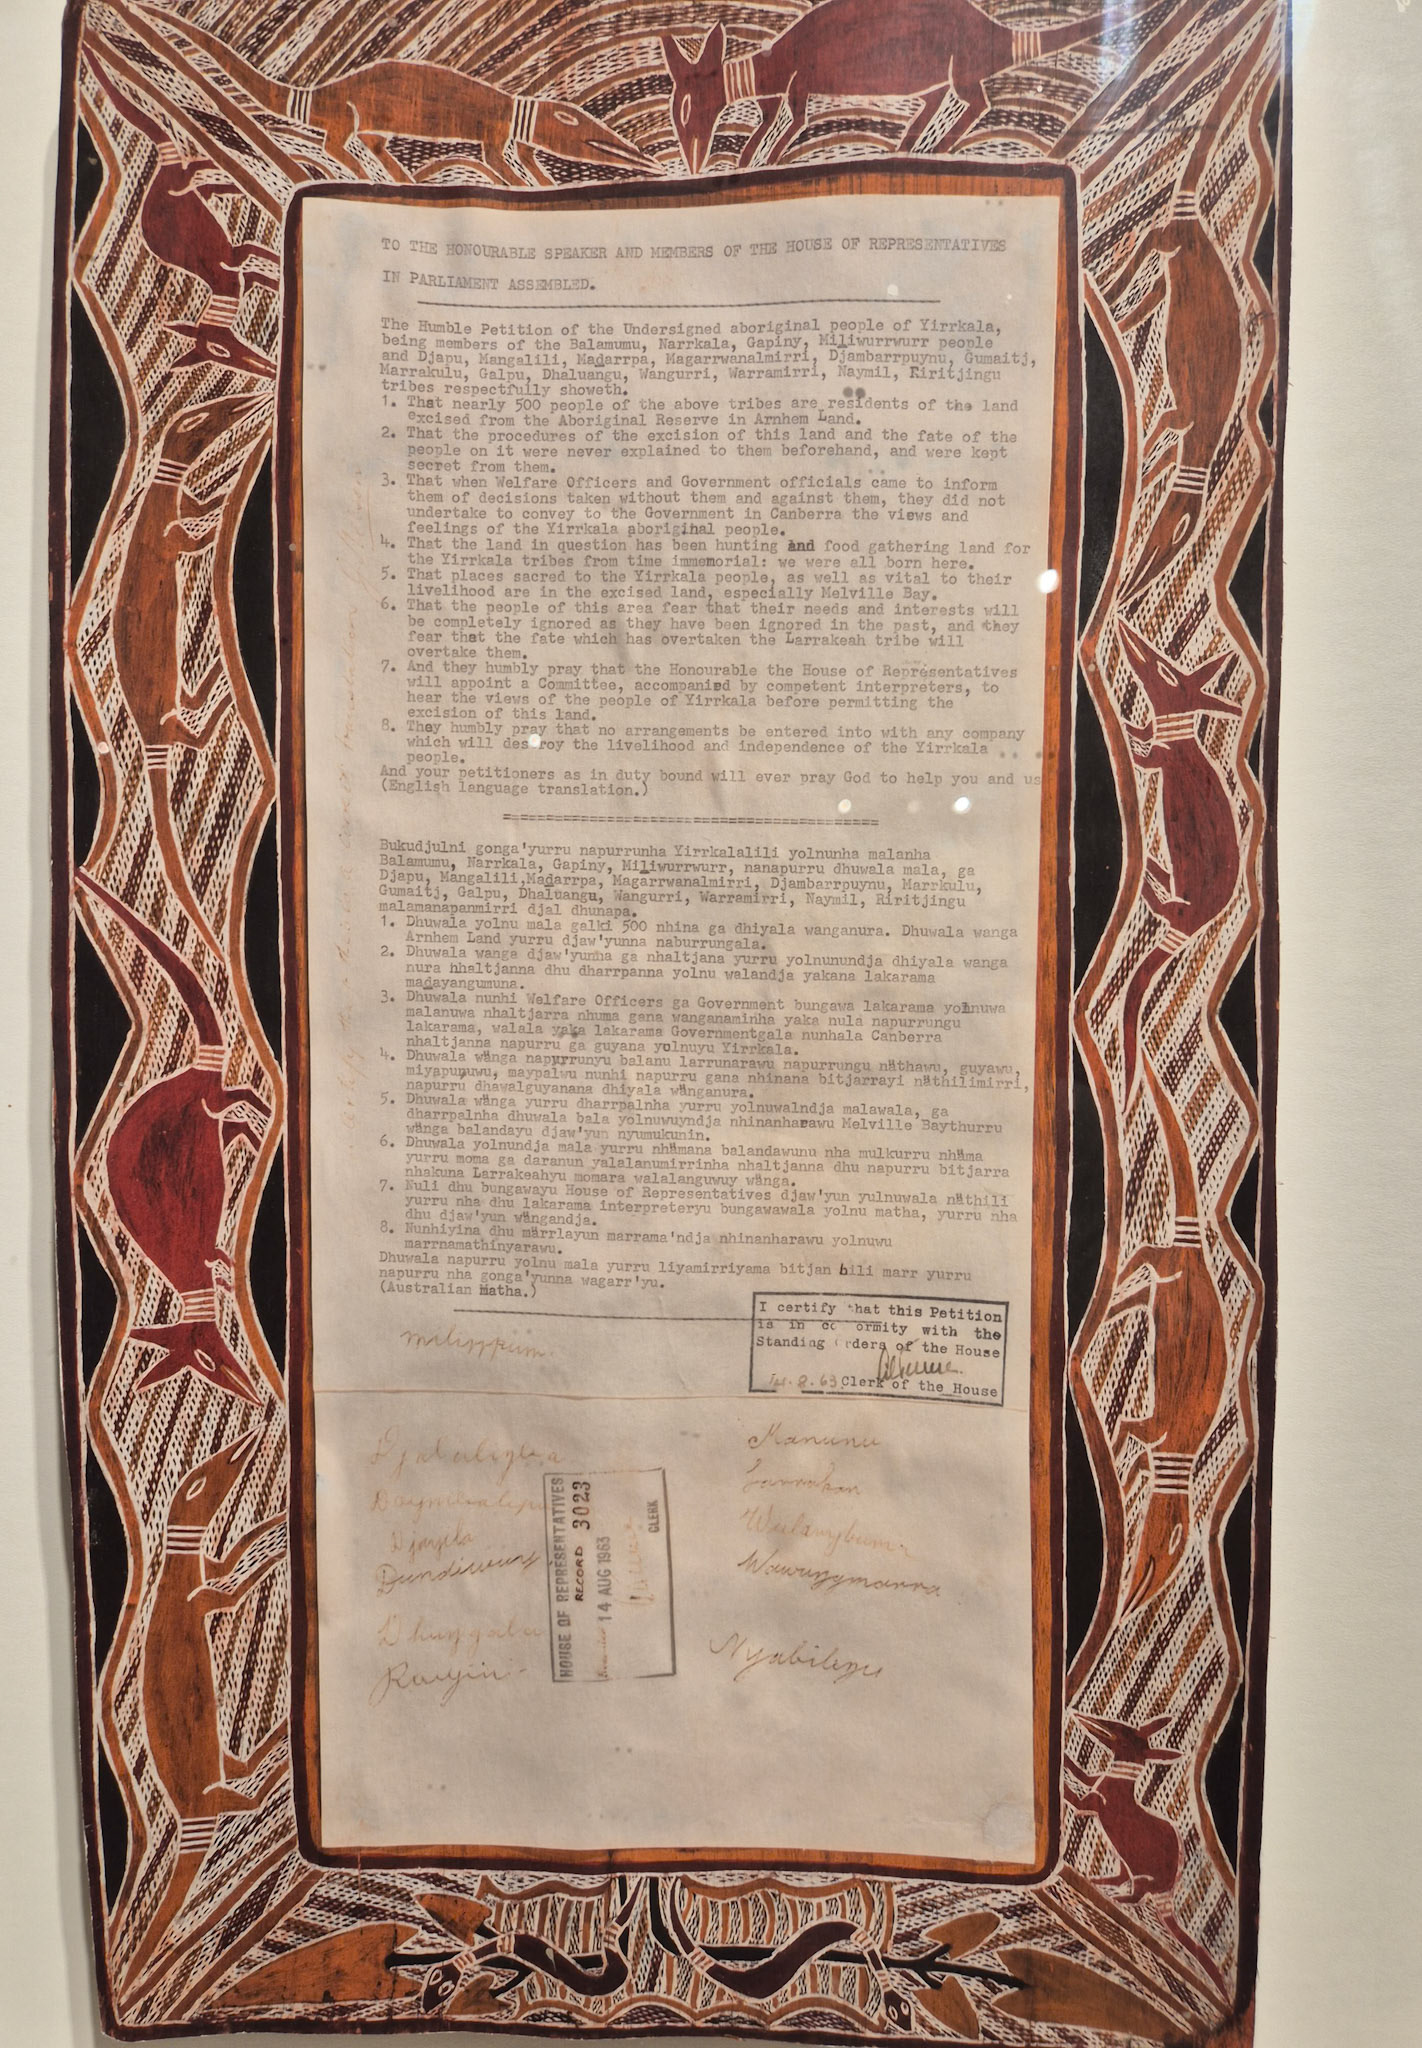 TO THE HONOURABLE SPEAKER AND MEMBERS OF THE HOUSE OF REPRESENTATIVES
IN PARLIAMENT ASSEMBLED.
The Humble Petition of the Undersigned aboriginal people of Yirrkala,
being members of the Balamumu, Narrkala, Gapiny, Miliwurrwurr people
and Djapu, Mangalili, Madarrpa, Magarrwanalmirri, Djambarrpuynu, Gumaitj,
Marrakulu, Galpu, Dhaluangu, Wangurri, Warramirri, Naymil, Riritjingu
tribes respectfully showeth.
1. That nearly 500 people of the above tribes are residents of the land
excised from the Aboriginal Reserve in Arnhem Land.
2. That the procedures of the excision of this land and the fate of the
people on it were never explained to them beforehand, and were kept
secret from them.
3. That when Welfare Officers and Government officials came to inform
them of decisions taken without them and against them, they did not
undertake to convey to the Government in Canberra the views and
feelings of the Yirrkala aboriginal people.
4. That the land in question has been hunting and food gathering land for
the Yirrkala tribes from time immemorial: we were all born here.
5. That places sacred to the Yirrkala people, as well as vital to their
livelihood are in the excised land, especially Melville Bay.
6. That the people of this area fear that their needs and interests will
be completely ignored as they have been ignored in the past, and they
fear that the fate which has overtaken the Larrakeah tribe will
overtake them.
7. And they humbly pray that the Honourable the House of Representatives
will appoint a Committee, accompanied by competent interpreters, to
hear the views of the people of Yirrkala before permitting the
excision of this land.
8. They humbly pray that no arrangements be entered into with any company
which will destroy the livelihood and independence of the Yirrkala
people.
And your petitioners as in duty bound will ever pray God to help you and us
(English language translation.)
Bukudjulni gonga'yurru napurrunha Yirrkalalili yolnunha malanha
Balamumu, Narrkala, Gapiny, Miliwurrwurr, nanapurru dhuwala mala, ga
Djapu, Mangalili, Madarrpa, Magarrwanalmirri, Djambarrpuynu, Marrkulu,
Gumaitj, Galpu, Dhaluangu, Wangurri, Warramirri, Naymil, Riritjingu
malamanapanmirri djal dhunapa.
1. Dhuwala yolnu mala galki 500 nhina ga dhiyala wanganura. Dhuwala wanga
Arnhem Land yurru djaw'yunna naburrungala.
2. Dhuwala wanga djaw'yunna ga nhaltjana yurru yolnunundja dhiyala wanga
nura nhaltjanna dhu dharrpanna yolnu walandja yakana lakarama
madayangumuna.
3. Dhuwala nunhi Welfare Officers ga Government bungawa lakarama yolnuwa
malanuwa nhaltjarra nhuma gana wanganaminha yaka nula napurrungu
lakarama, walala yaka lakarama Governmentgala nunhala Canberra
nhaltjanna napurru ga guyana yolnuyu Yirrkala.
4. Dhuwala wänga napurrunyu balanu larrunarawu napurrungu näthawu, guyawu,
miyapunuwu, maypalwu nunhi napurru gana nhinana bitjarrayi näthilimirri,
napurru dhawalguyanana dhiyala wänganura.
5. Dhuwala wänga yurru dharrpalnha yurru yolnuwalndja malawala, ga
dharrpalnha dhuwala bala yolnuwuyndja nhinanharawu Melville Baythurru
wänga balandayu djaw'yun nyumukunin.
6. Dhuwala yolnundja mala yurru nhämana balandawunu nha mulkurru nhäma
yurru moma ga daranun yalalanumirrinha nhaltjanna dhu napurru bitjarra
nhakuna Larrakeahyu momara walalanguwuy wänga.
7. Nuli dhu bungawayu House of Representatives djaw'yun yulnuwala näthili
yurru nha dhu lakarama interpreteryu bungawawala yolnu matha, yurru nha
dhu djaw'yun wängandja.
8. Nunhiyina dhu märrlayun marrama'ndja nhinanharawu yolnuwu
marrnamathinyarawu.
Dhuwala napurru yolnu mala yurru liyamirriyama bitjan bili marr yurru
napurru nha gonga'yunna wagarr'yu.
(Australian Matha.)
I certify that this Petition
is in conformity with the
Standing Orders of the House
14.8.63 Clerk of the House
Milirrpum
Djalalingba
Manunu
Daymbalipu
Larrakan
Djayila
Wulanybuma
Dundiwuy
Wawunggmarra
Dhunggala
Raiyin
Nyabilingu
HOUSE OF REPRESENTATIVES
RECORD 3023
14 AUG 1963
CLERK